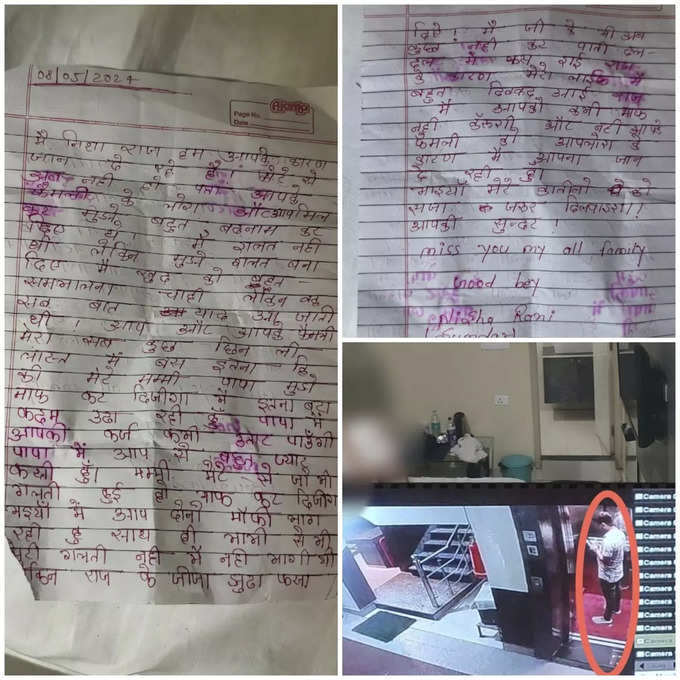 08/05/2024
Ajanta
Page No.
Date
मै निशा राज हम आपके कारण
जतना दे रहे है मेरे से
नही हो आपके
के लोग और आप मिल
मुझे बहुत बदनाम कर
थी लेकिन मै गलत नही
दिए मै खुद को बहुत
समभालना चाही लेकिन वह
सब बात याद आ जाती
थी ! आप और आपके फैमली
मेरी सब कुछ छिन ली
लास्ट मे बस इतना
की मेरे मम्मी पापा मुझे
माफ कर दिजीगा मै इतना बड़ा
कदम उठा रही हुँ पापा मै
आपकी कर्ज कभी उतार पाउंगी
पापा मै आप से बहुत प्यार
करती हुँ मम्मी मेरे से जो भी
गलती हुई हो माफ कर दिजीगा
भईया मै आप दोनो माँफी माग
रही हु साथ ही भाभी से भी
मेरी गलती नही मै नही भागी थी
लेकिन राज के जीजा झुठा फसा
दिये ! मै जी के भी अब
कुछ नही कर पाती दल-
दल मे फस गई राज
के कारण मेरी लाईफ मे
बहुत दिक्कत आई राज
मै आपको कभी माफ
नही करूंगी और नही आपके
फैमली को आपलोग के
कारण मै अपना जान
दे रही हुँ
भाईयाँ मेरे कातीलो को
सजा जरुर दिलवाइएगा !
आपकी सुन्दर !
miss you my all family
Good bey
Nisha Rani
Camera
Camera
Camera
Camera
Camera
Camera
Camera
Camera
Camera
Camera
Camera
Camera
Camera